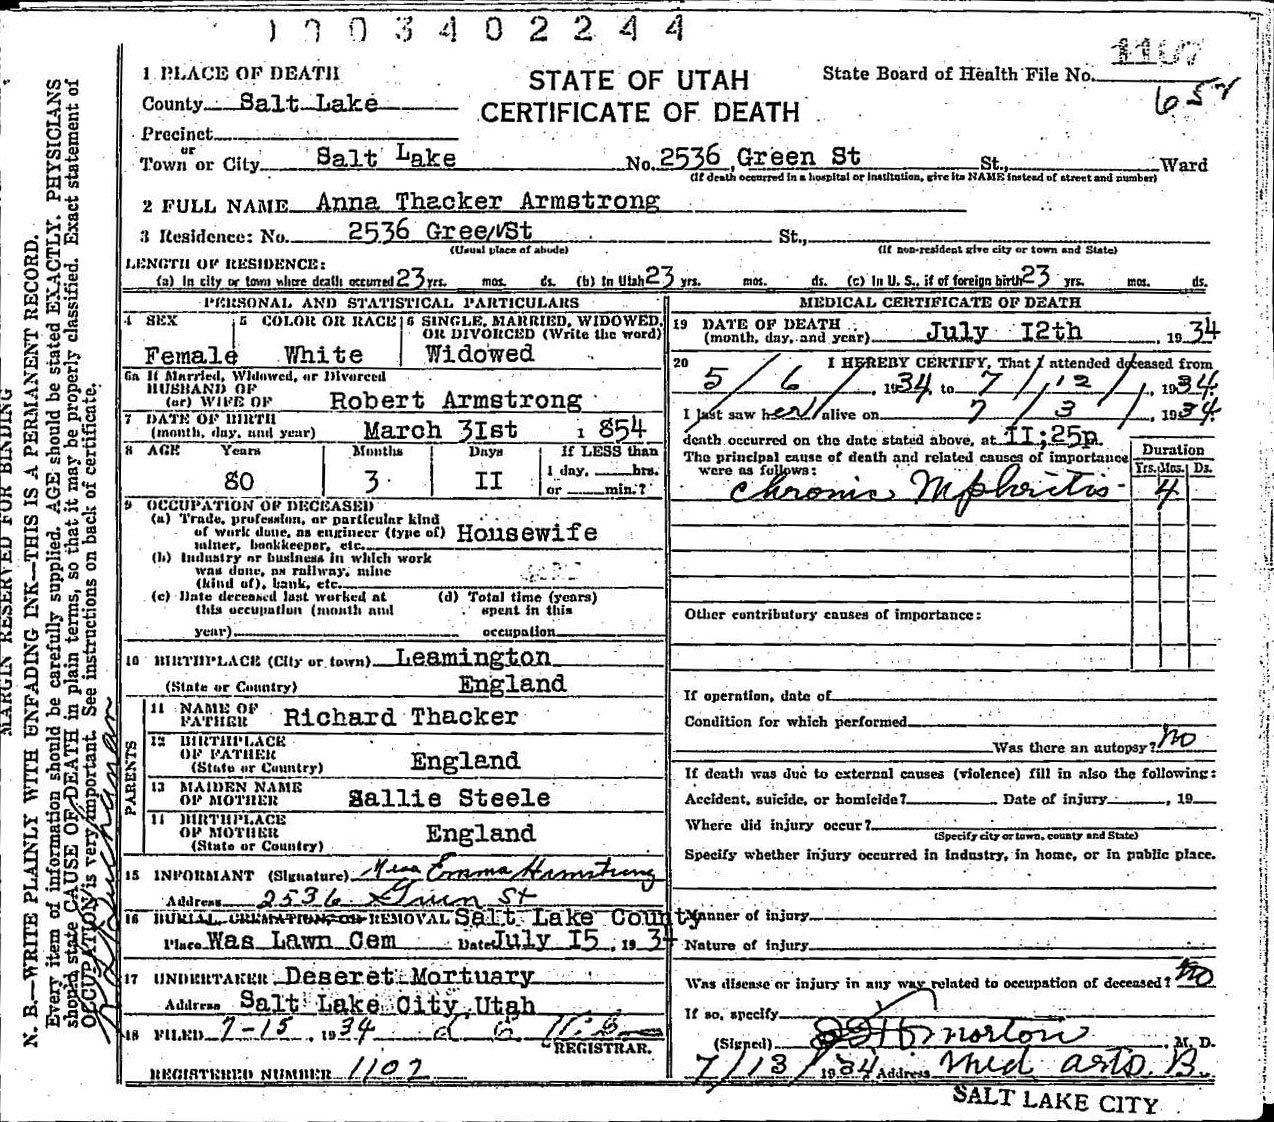 1 9 0 3 4 0 2 2 4 4
1107
1 PLACE OF DEATH
STATE OF UTAH
State Board of Health File No.
County Salt Lake
CERTIFICATE OF DEATH
657
Precinct
or
Town or City Salt Lake No. 2536 Green St St., Ward
(If death occurred in a hospital or institution, give its NAME instead of street and number)
2 FULL NAME Anna Thacker Armstrong
3 Residence: No. 2536 Green St St.,
(Usual place of abode) (If non-resident give city or town and State)
LENGTH OF RESIDENCE:
(a) In city or town where death occurred 23 yrs. mos. ds. (b) In Utah 23 yrs. mos. ds. (c) In U. S., if of foreign birth 23 yrs. mos. ds.
PERSONAL AND STATISTICAL PARTICULARS
4 SEX Female
5 COLOR OR RACE White
6 SINGLE, MARRIED, WIDOWED, OR DIVORCED (Write the word) Widowed
6a If Married, Widowed, or Divorced
HUSBAND OF
(or) WIFE OF Robert Armstrong
7 DATE OF BIRTH
(month, day, and year) March 3Ist 1 854
8 AGE Years Months Days If LESS than
1 day, hrs.
80 3 II or min.?
9 OCCUPATION OF DECEASED
(a) Trade, profession, or particular kind
of work done, as engineer (type of) Housewife
miner, bookkeeper, etc.
(b) Industry or business in which work
was done, as railway, mine
(kind of), bank, etc.
(c) Date deceased last worked at (d) Total time (years)
this occupation (month and spent in this
year) occupation
10 BIRTHPLACE (City or town) Leamington
(State or Country) England
PARENTS
11 NAME OF
FATHER Richard Thacker
12 BIRTHPLACE
OF FATHER
(State or Country) England
13 MAIDEN NAME
OF MOTHER Sallie Steele
14 BIRTHPLACE
OF MOTHER
(State or Country) England
15 INFORMANT (Signature) Miss Emma Armstrong
Address 2536 Green St
16 BURIAL, CREMATION, OR REMOVAL Salt Lake County
Place Was Lawn Cem Date July I5, 19 34
17 UNDERTAKER Deseret Mortuary
Address Salt Lake City Utah
18 FILED 7-15, 1934
REGISTRAR.
REGISTERED NUMBER 1107
MEDICAL CERTIFICATE OF DEATH
19 DATE OF DEATH
(month, day, and year) July I2th, 19 34
20 I HEREBY CERTIFY, That I attended deceased from
5/6/, 1934, to 7/12/, 1934.
I last saw her alive on 7/3/, 1934.
death occurred on the date stated above, at II;25p.
The principal cause of death and related causes of importance
were as follows:
Duration
Yrs. Mos. Ds.
Chronic Nephritis 4
Other contributory causes of importance:
If operation, date of
Condition for which performed
Was there an autopsy? no
If death was due to external causes (violence) fill in also the following:
Accident, suicide, or homicide? Date of injury, 19
Where did injury occur?
(Specify city or town, county and State)
Specify whether injury occurred in industry, in home, or in public place.
Manner of injury
Nature of injury
Was disease or injury in any way related to occupation of deceased? no
If so, specify
(Signed) Morton, M. D.
7/13/1934 Address Med arts. B.
SALT LAKE CITY
MARGIN RESERVED FOR BINDING
N. B.—WRITE PLAINLY WITH UNFADING INK—THIS IS A PERMANENT RECORD.
Every item of information should be carefully supplied. AGE should be stated EXACTLY. PHYSICIANS
should state CAUSE OF DEATH in plain terms, so that it may be properly classified. Exact statement of
OCCUPATION is very important. See instructions on back of certificate.